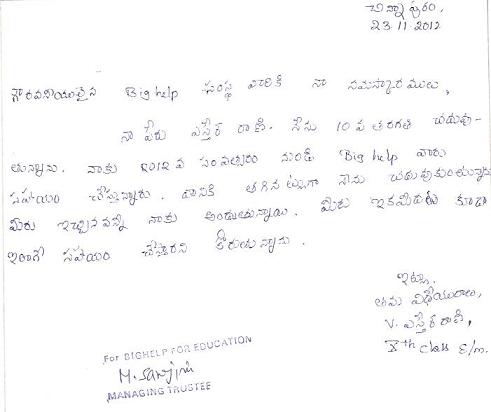 చిన్నాపురం,
23.11.2012
గౌరవనీయులైన Big help సంస్థ వారికి నా నమస్కారములు,
నా పేరు ఎస్తేర్ రాణి. నేను 10 వ తరగతి చదువు-
తున్నాను. నాకు 2012 వ సంవత్సరం నుండి Big help వారు
సహాయం చేస్తున్నారు. దానికి తగినట్లుగా నేను చదువుకుంటున్నాను
మీరు ఇచ్చినవన్నీ నాకు అందుతున్నాయి. మీరు ఇకమీదట కూడా
ఇలాగే సహాయం చేస్తారని కోరుచున్నాను.
ఇట్లు,
తమ విధేయురాలు,
V. ఎస్తేర్ రాణి,
Xth class E/m.
For BIGHELP FOR EDUCATION
M. Sanjini
MANAGING TRUSTEE